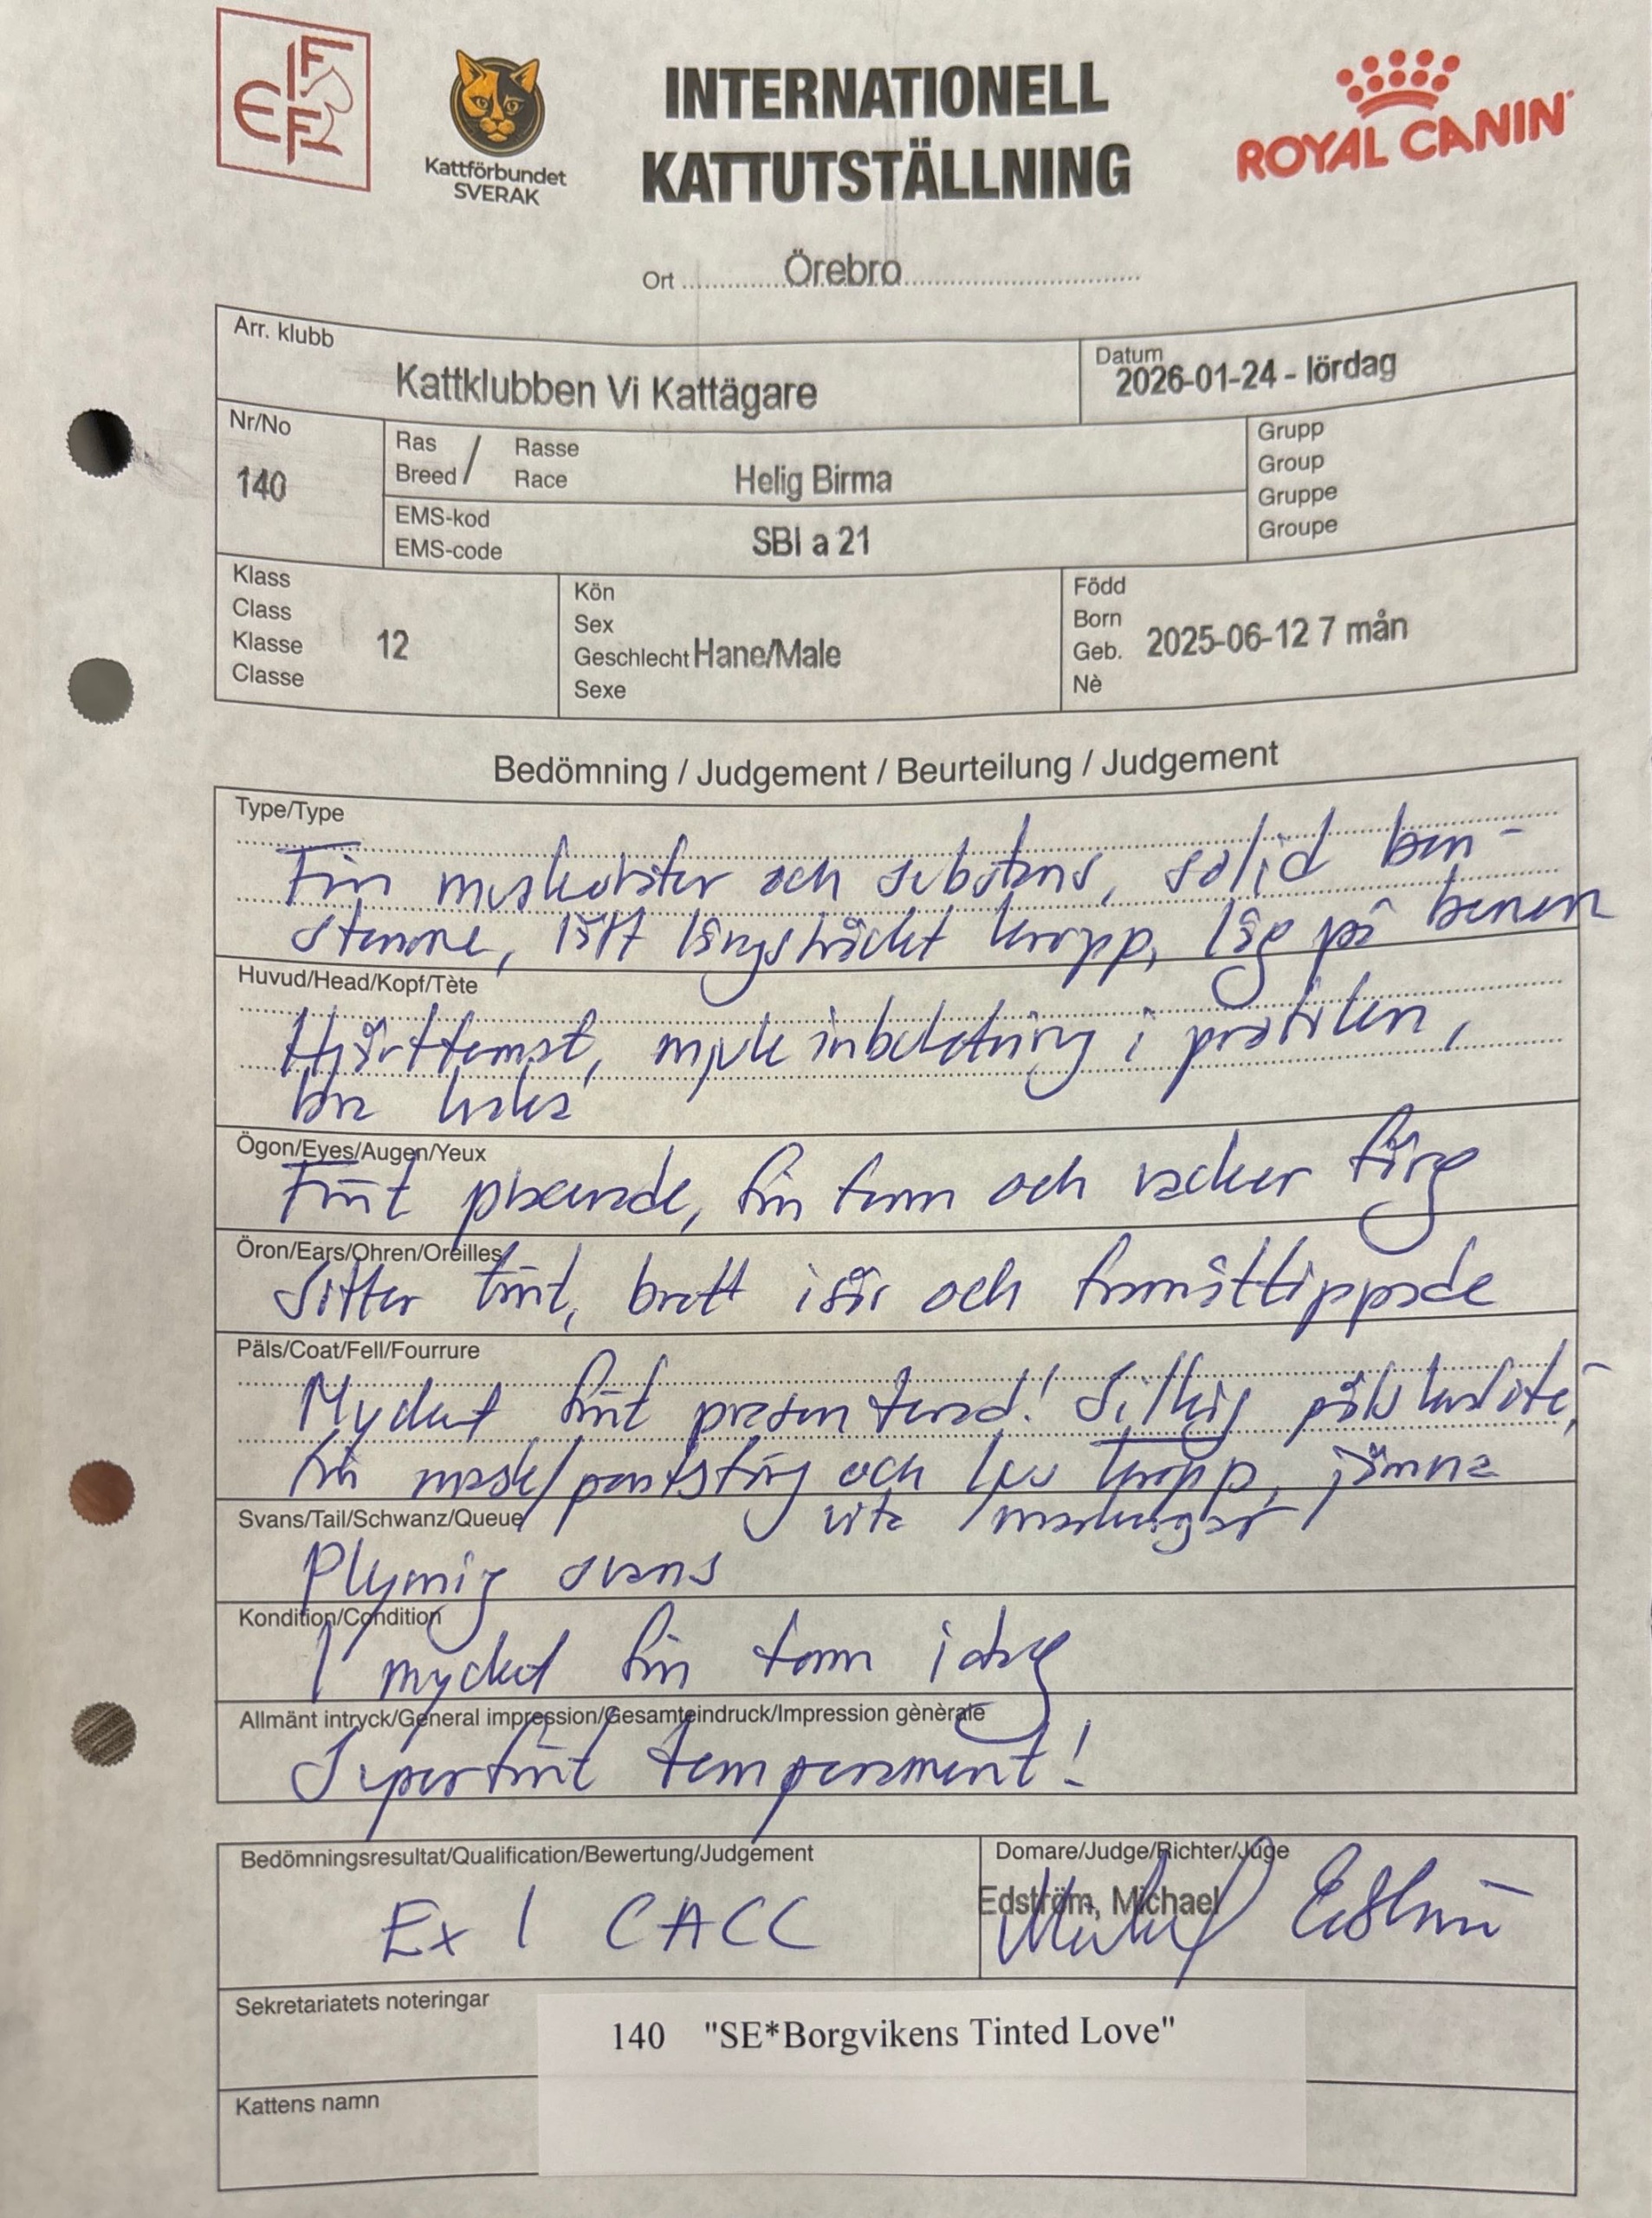 FIFe
Kattförbundet
SVERAK
INTERNATIONELL
KATTUTSTÄLLNING
ROYAL CANIN
Ort Örebro
Arr. klubb
Kattklubben Vi Kattägare
Datum
2026-01-24 - lördag
Nr/No
140
Ras Rasse
Breed / Race
Helig Birma
EMS-kod
EMS-code
SBI a 21
Grupp
Group
Gruppe
Groupe
Klass
Class
Klasse
Classe
12
Kön
Sex
Geschlecht Hane/Male
Sexe
Född
Born
Geb. 2025-06-12 7 mån
Nè
Bedömning / Judgement / Beurteilung / Judgement
Type/Type
Fin muskulatur och substans, solid ben-
stomme, lätt långsträckt kropp, låg på benen
Huvud/Head/Kopf/Tète
Hjärtformat, mjuk inbuktning i profilen,
bra haka
Ögon/Eyes/Augen/Yeux
Fint placerade, fin form och vacker färg
Öron/Ears/Ohren/Oreilles
Sitter fint, brett isär och framåttippade
Päls/Coat/Fell/Fourrure
Mycket fint presenterad! Silkig pälskvalité,
fin mask/pointsfärg och ljus kropp, jämna
vita markingar
Svans/Tail/Schwanz/Queue
Plymig svans
Kondition/Condition
I mycket fin form idag
Allmänt intryck/General impression/Gesamteindruck/Impression gènèrale
Superfint temperament!
Bedömningsresultat/Qualification/Bewertung/Judgement
Ex 1 CACC
Domare/Judge/Richter/Juge
Edström, Michael
Michael Edström
Sekretariatets noteringar
140 "SE*Borgvikens Tinted Love"
Kattens namn